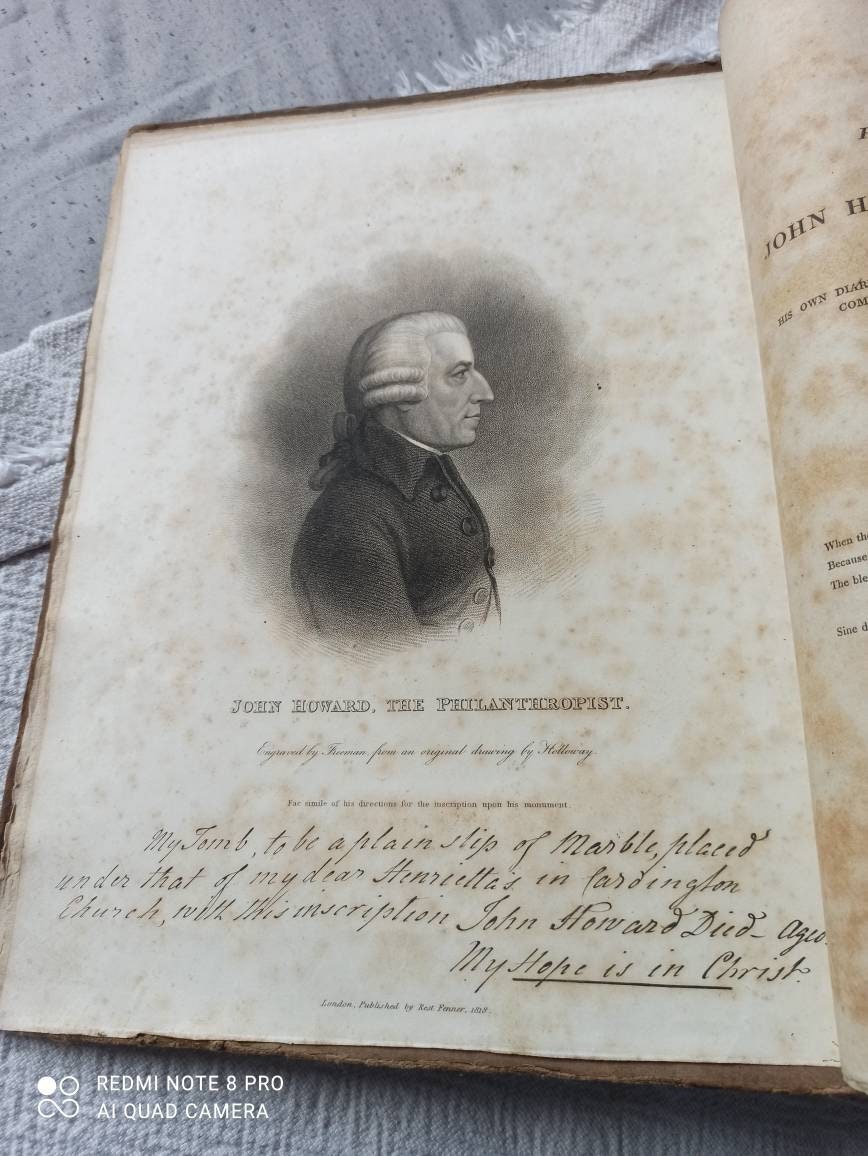 JOHN HOWARD, THE PHILANTHROPIST.
Engraved by Freeman, from an original drawing by Holloway.
Fac simile of his directions for the inscription upon his monument.
My Tomb, to be a plain slip of Marble, placed
under that of my dear Henrietta's in Cardington
Church, with this inscription John Howard Died - Aged
My Hope is in Christ.
London, Published by Rest Fenner, 1818.
JOHN H
HIS OWN DIAR
COM
When the
Because
The ble
Sine d
REDMI NOTE 8 PRO
AI QUAD CAMERA